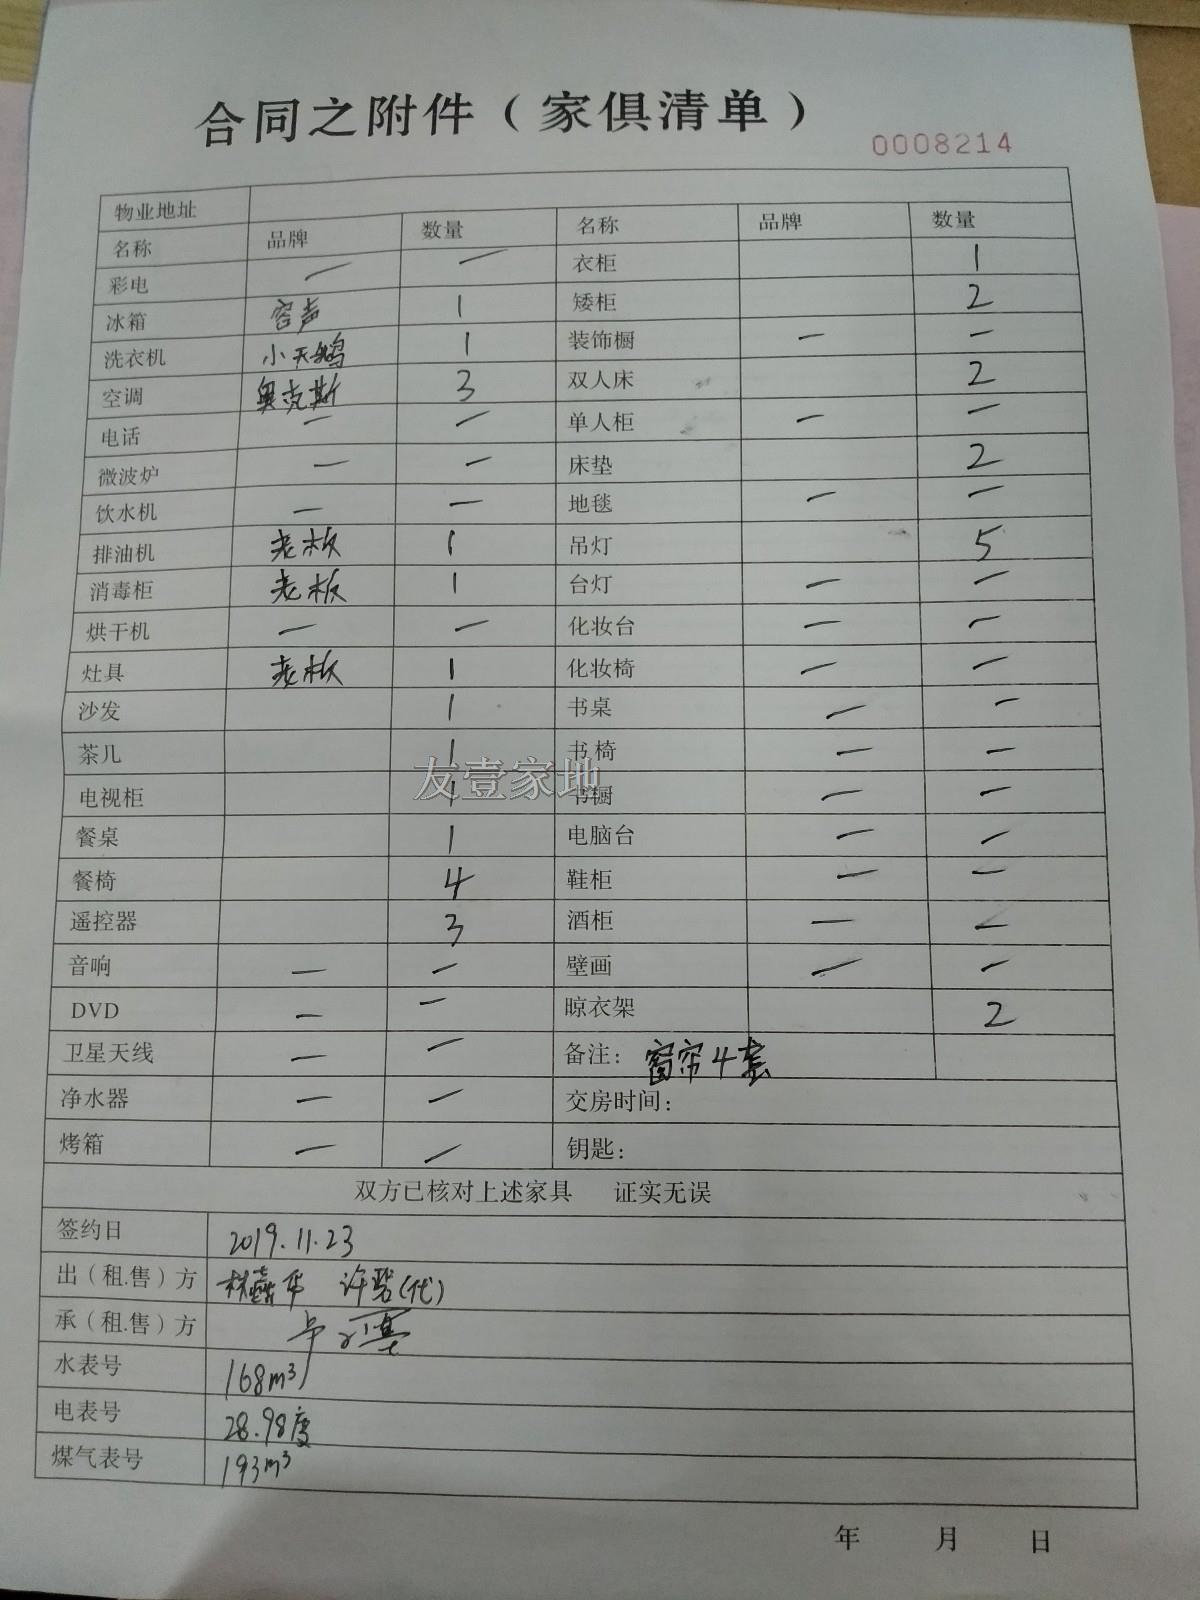 合同之附件（家俱清单）
0008214
物业地址
名称 品牌 数量 名称 品牌 数量
彩电 — — 衣柜 1
冰箱 容声 1 矮柜 2
洗衣机 小天鹅 1 装饰橱 — —
空调 奥克斯 3 双人床 2
电话 — — 单人柜 — —
微波炉 — — 床垫 2
饮水机 — — 地毯 — —
排油机 老板 1 吊灯 5
消毒柜 老板 1 台灯 — —
烘干机 — — 化妆台 — —
灶具 老板 1 化妆椅 — —
沙发 1 书桌 — —
茶几 1 书椅 — —
友壹家地
电视柜 1 书橱 — —
餐桌 1 电脑台 — —
餐椅 4 鞋柜 — —
遥控器 3 酒柜 — —
音响 — — 壁画 — —
DVD — — 晾衣架 2
卫星天线 — — 备注：窗帘4套
净水器 — — 交房时间：
烤箱 — — 钥匙：
双方已核对上述家具 证实无误
签约日 2019.11.23
出（租.售）方 (代)
承（租.售）方
水表号 168m³
电表号 28.98度
煤气表号 193m³
年 月 日